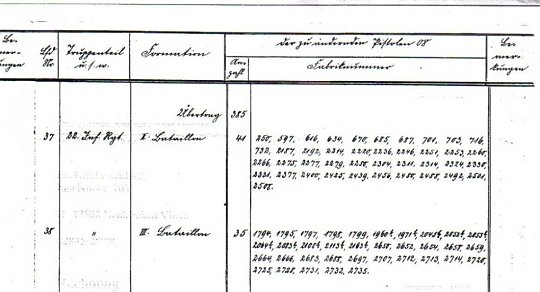 Be-
mer-
kungen
Lfd
Nr
Truppenteil
u.s.w.
Formation
Der zu ändernden Pistolen 08
An-
zahl
Fabriknummer
Be-
mer-
kungen
Übertrag 385
37 22. Inf. Rgt. I. Bataillon 41 250, 597, 616, 634, 670, 685, 687, 701, 703, 716,
732, 2187, 2192, 2214, 2220, 2236, 2246, 2251, 2253, 2265,
2266, 2275, 2277, 2279, 2280, 2304, 2311, 2314, 2324, 2330,
2331, 2377, 2400, 2425, 2439, 2456, 2480, 2485, 2492, 2501,
2508.
38 " III. Bataillon 35 1794, 1795, 1797, 1798, 1799,
2658, 2652, 2654, 2658, 2659,
2664, 2666, 2683, 2688, 2697, 2707, 2712, 2713, 2714, 2720,
2725, 2728, 2731, 2732, 2735.